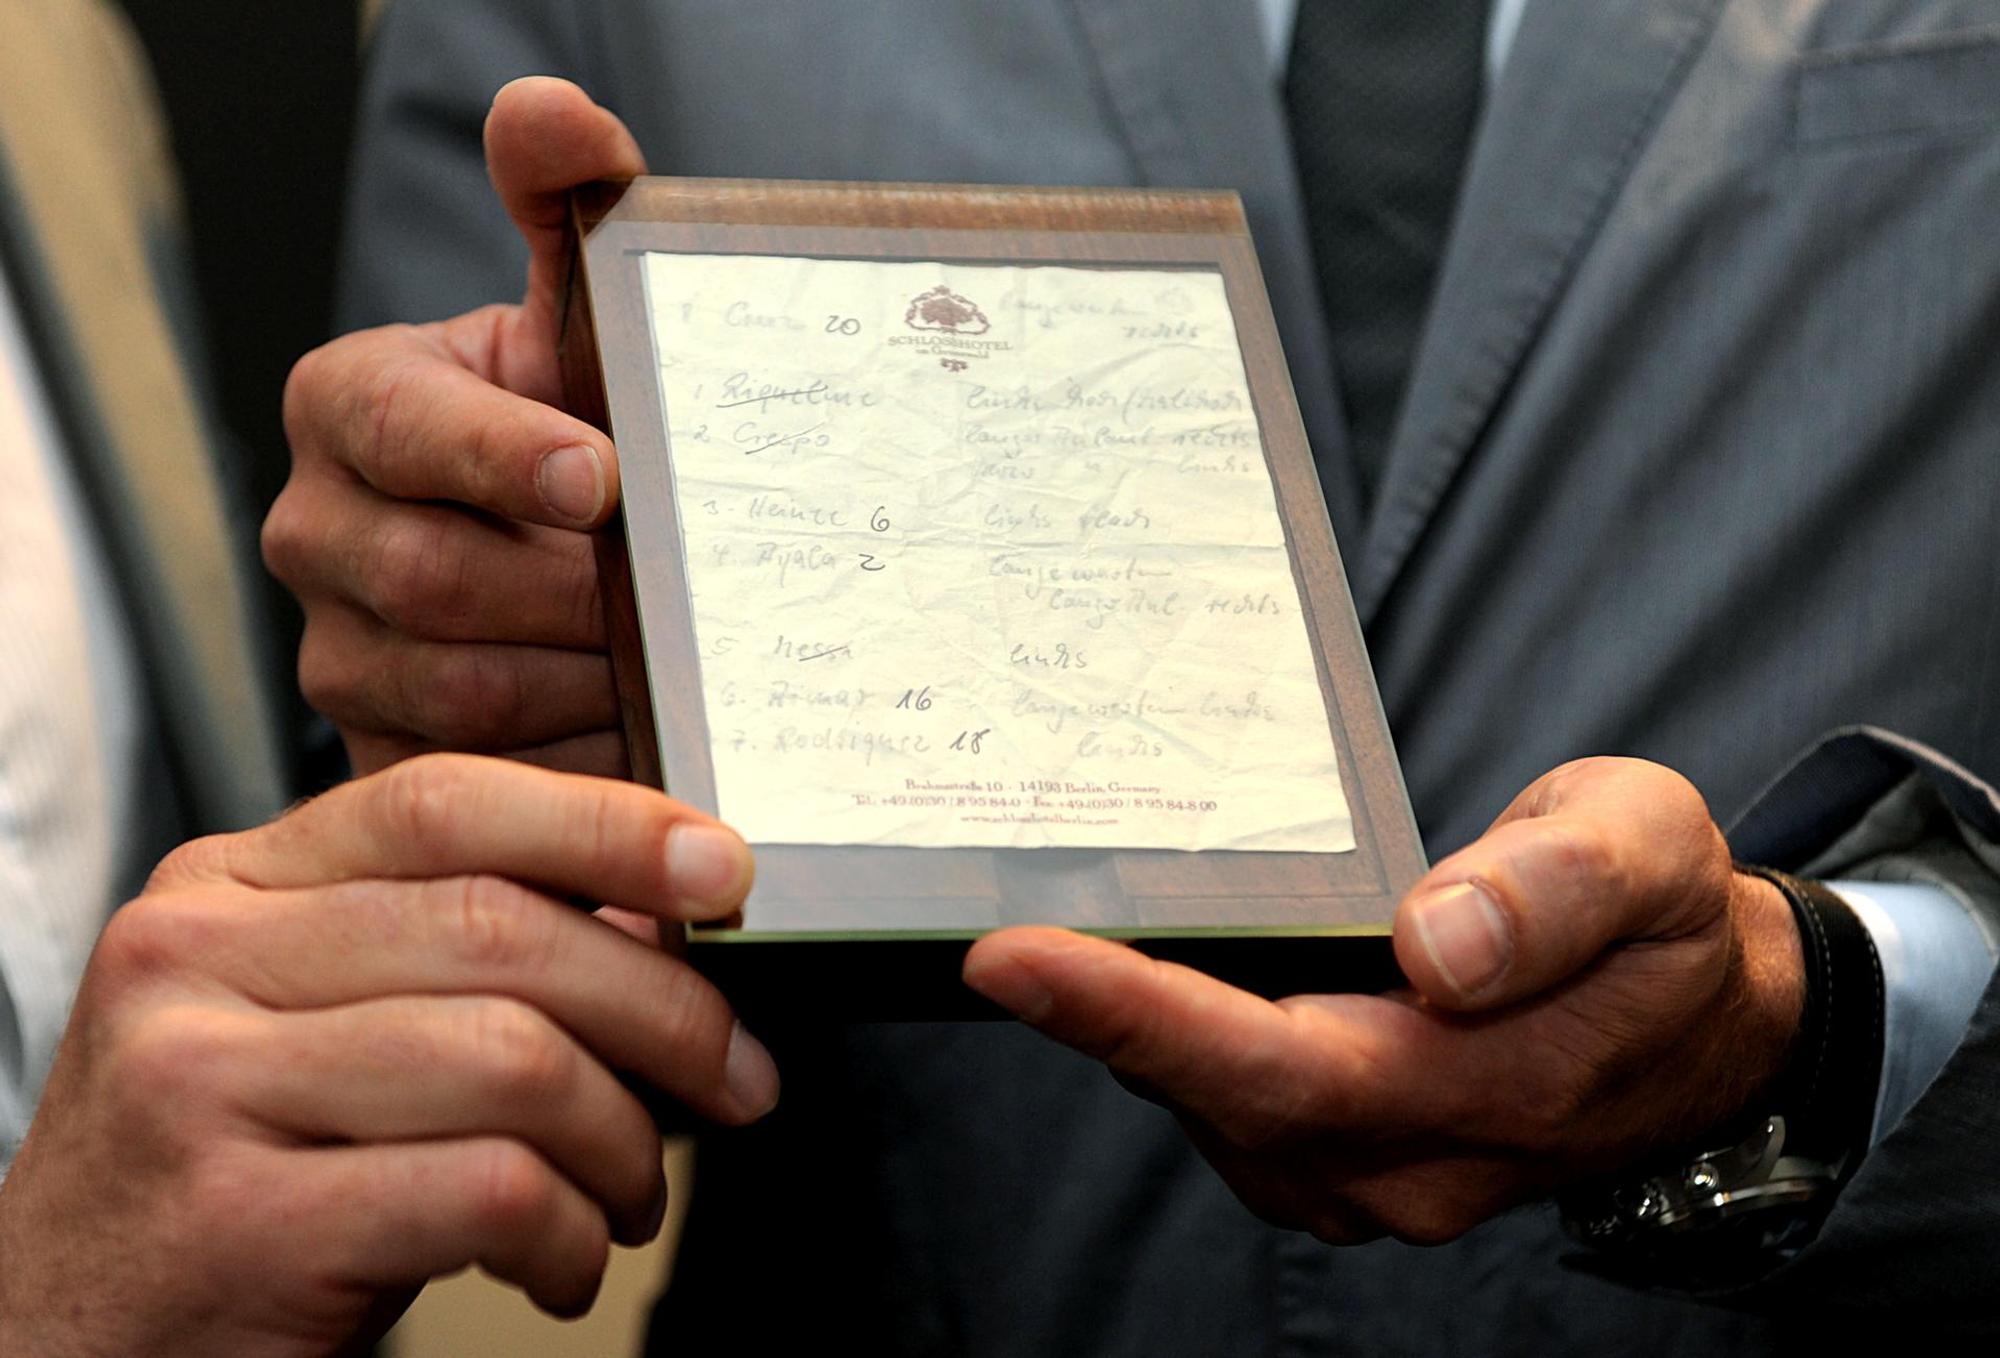 8 Cruz 20
langer warten
rechts
SCHLOSSHOTEL
im Grunewald
1 Riquelme links hoch
2 Crespo langer Anlauf rechts
" links
3. Heinze 6 links flach
4. Ayala 2 lange warten
langer Anl. rechts
5 Messi links
6. Aimar 16 lange warten links
7. Rodriguez 18 links
Brahmsstraße 10 · 14193 Berlin, Germany
Tel.: +49.(0)30 / 8 95 84-0 · Fax: +49.(0)30 / 8 95 84-8 00
www.schlosshotelberlin.com